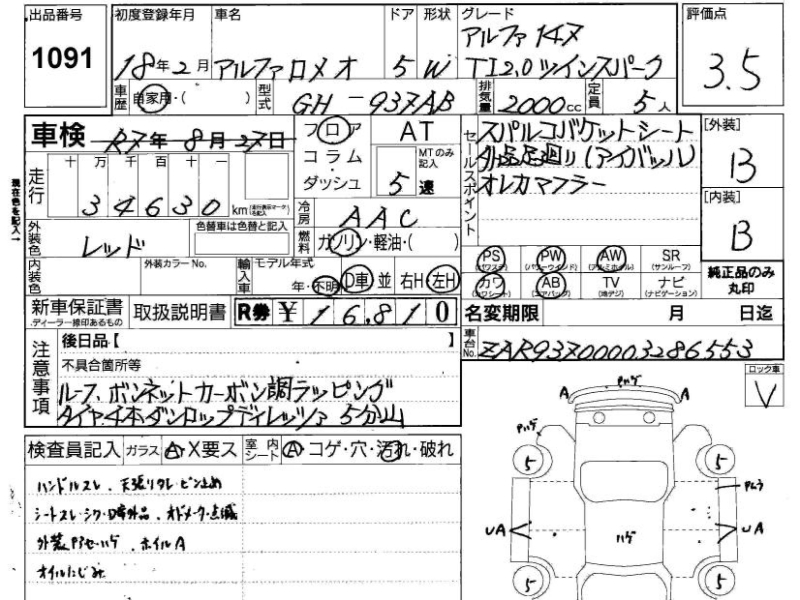 出品番号 初度登録年月 車名 ドア 形状 グレード 評価点
1091 18年2月 アルファロメオ 5 W アルファ147
TI 2.0 ツインスパーク 3.5
車歴 自家用・( ) 型式 GH-937AB 排気量 2000cc 定員 5人
車検 R7年8月27日 フロア AT セールスポイント スパルコバケットシート [外装]
コラム・ MTのみ記入 外品足廻り(アイバッハ) B
走行 十万千百十一 ダッシュ 5速 オレカマフラー
34630km (走行表示マークも記入) [内装]
現在色を記入→ 冷房 AAC B
外装色 レッド 色替車は色替と記入 燃料 ガソリン・軽油・( )
PS (パワステ) PW (パワーウインド) AW (アルミホイル) SR (サンルーフ)
内装色 外装カラーNo. 輸入車 モデル年式 年・不明 D車 並 右H・左H カワ (カワシート) AB (エアバッグ) TV (地デジ) ナビ (ナビゲーション) 純正品のみ丸印
新車保証書 ディーラー線印あるもの 取扱説明書 R券 ¥16,810 名変期限 月 日迄
注意事項 後日品【 】 車台No. ZAR93700003286553
不具合箇所等 ロック車
ルーフ、ボンネットカーボン調ラッピング V
タイヤ4本ダンロップディレッツァ 5分山
検査員記入 ガラス A・X要ス 室内シート A・コゲ・穴・汚れ・破れ
ハンドルスレ、天張りタレ・ピン止め
シートスレ・シワ・D席外品、オドメータ点滅
外装P.アセ・ハゲ、ホイルA
オイルにじみ
Pハゲ
A A
Pハゲ
5 5
UA UA
ハゲ
5 5